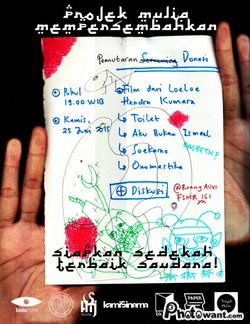 Projek mulia
mempersembahkan
Pemutaran Screening Donasi
Pukul
19.00 WIB
Kamis,
25 Juni 2015
Film dari Loeloe
Hendra Kumara
→ Toilet
→ Aku Bukan Ismael
→ Soekarno
→ Onomastika
+ Diskusi
@Ruang Audi
FSMR ISI
siapkan sedekah
terbaik saudara!
kamiSinema
PAPER
Photowant.com